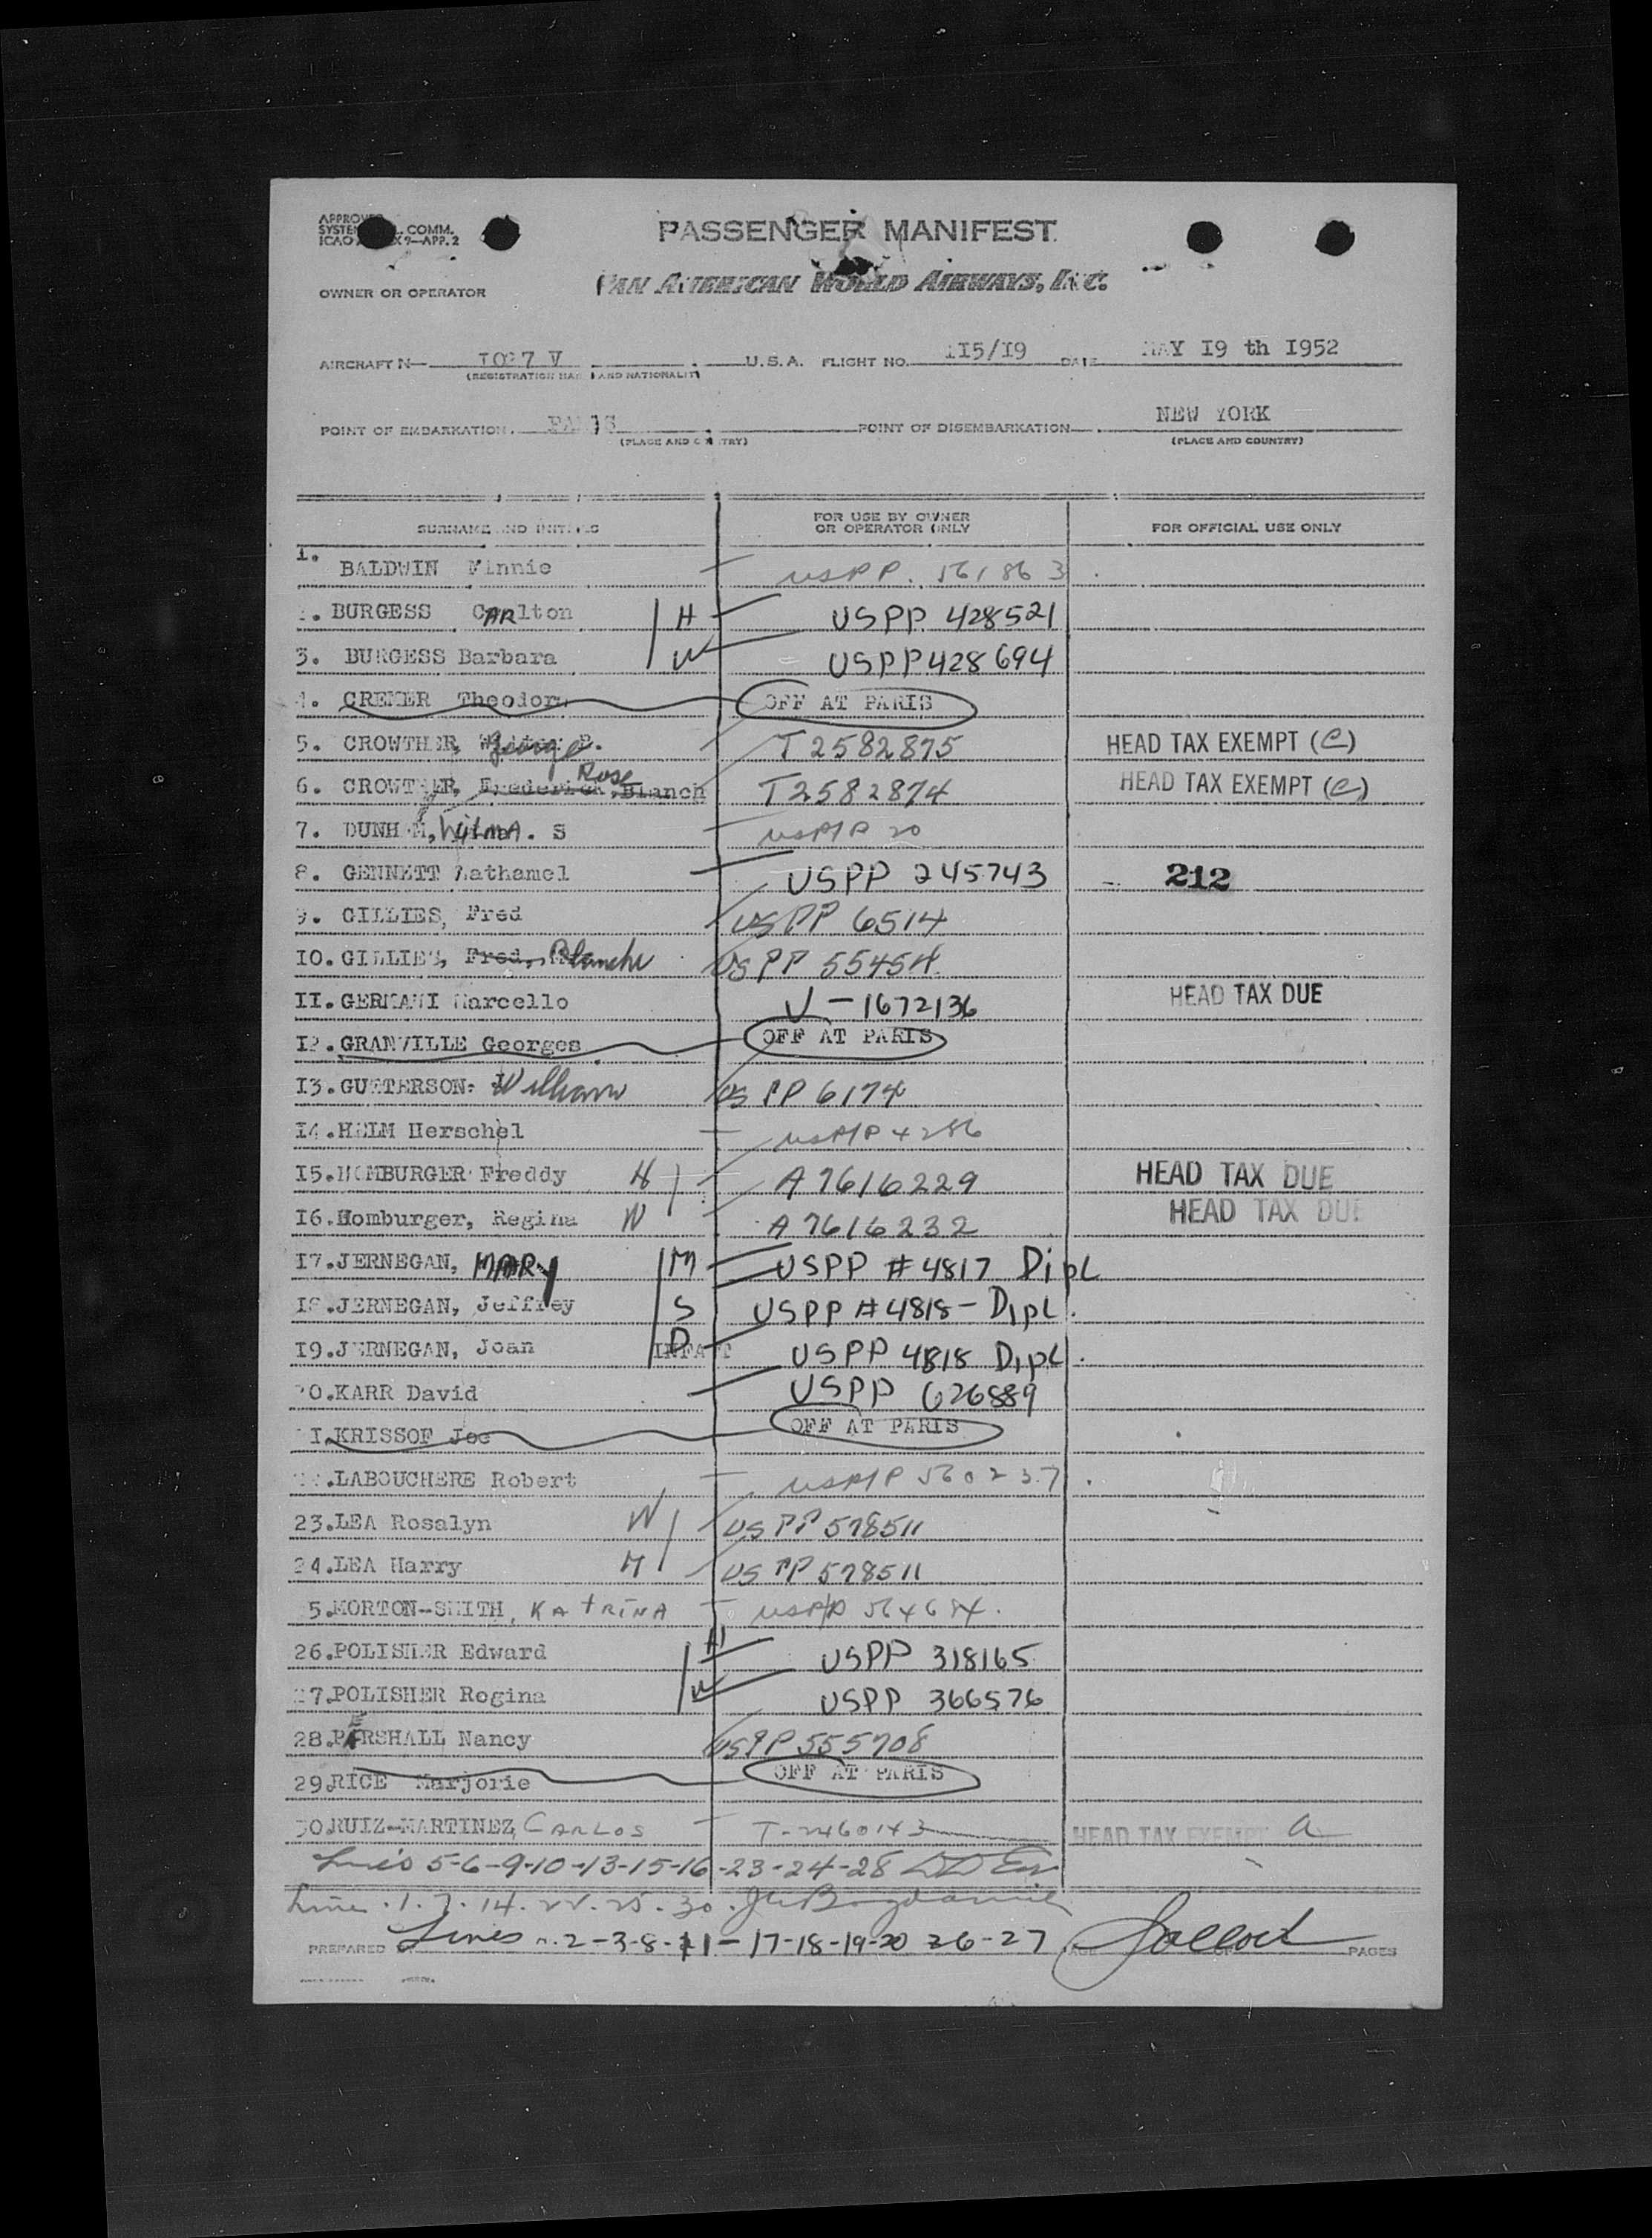 PASSENGER MANIFEST
COMM.
ICAO 9—APP. 2
OWNER OR OPERATOR PAN AMERICAN WORLD AIRWAYS, INC.
AIRCRAFT N— U.S.A. FLIGHT NO. 115/19 DATE MAY 19 th 1952
(REGISTRATION AND NATIONALITY)
POINT OF EMBARKATION PARIS POINT OF DISEMBARKATION NEW YORK
(PLACE AND COUNTRY) (PLACE AND COUNTRY)
SURNAME AND INITIALS FOR USE BY OWNER OR OPERATOR ONLY FOR OFFICIAL USE ONLY
1. BALDWIN Minnie USPP. 561863
. BURGESS CARlton H USPP 428521
3. BURGESS Barbara W USPP 428694
4. CREMER Theodor OFF AT PARIS
5. CROWTHER, George T2582875 HEAD TAX EXEMPT (C)
6. CROWTHER, Frederick, Rose Blanch T2582874 HEAD TAX EXEMPT (C)
7. DUNHAM, WilmA. S USPP 20
8. GENNETT Nathamel USPP 245743 212
9. GILLIES, Fred USPP 6514
10. GILLIES, Fred, Blanche USPP 55454
11. GERMANI Marcello V-1672136 HEAD TAX DUE
12. GRANVILLE Georges OFF AT PARIS
13. GUTTERSON: William USPP 6174
14. HELM Herschel USPP 4286
15. HOMBURGER Freddy H A7616229 HEAD TAX DUE
16. Homburger, Regina W A7616232 HEAD TAX DUE
17. JERNEGAN, MARY M USPP #4817 Dipl
18. JERNEGAN, Jeffrey S USPP #4818 - Dipl.
19. JERNEGAN, Joan INFANT D USPP 4818 Dipl.
20. KARR David USPP 626889
1. KRISSOF Joe OFF AT PARIS
. LABOUCHERE Robert USPP 560237
23. LEA Rosalyn W USPP 578511
24. LEA Harry H USPP 578511
5. MORTON-SMITH, KATRINA USPP 564684.
26. POLISHER Edward H USPP 318165
27. POLISHER Regina W USPP 366576
28. PERSHALL Nancy USPP 555708
29. RICE Marjorie OFF AT PARIS
30. RUIZ-MARTINEZ, CARLOS T-2460143 HEAD TAX EXEMPT a
Lines 5-6-9-10-13-15-16-23-24-28
Line. 1. 7. 14. 22. 25. 30.
PREPARED Lines 2-3-8-11-17-18-19-20 26-27 PAGES